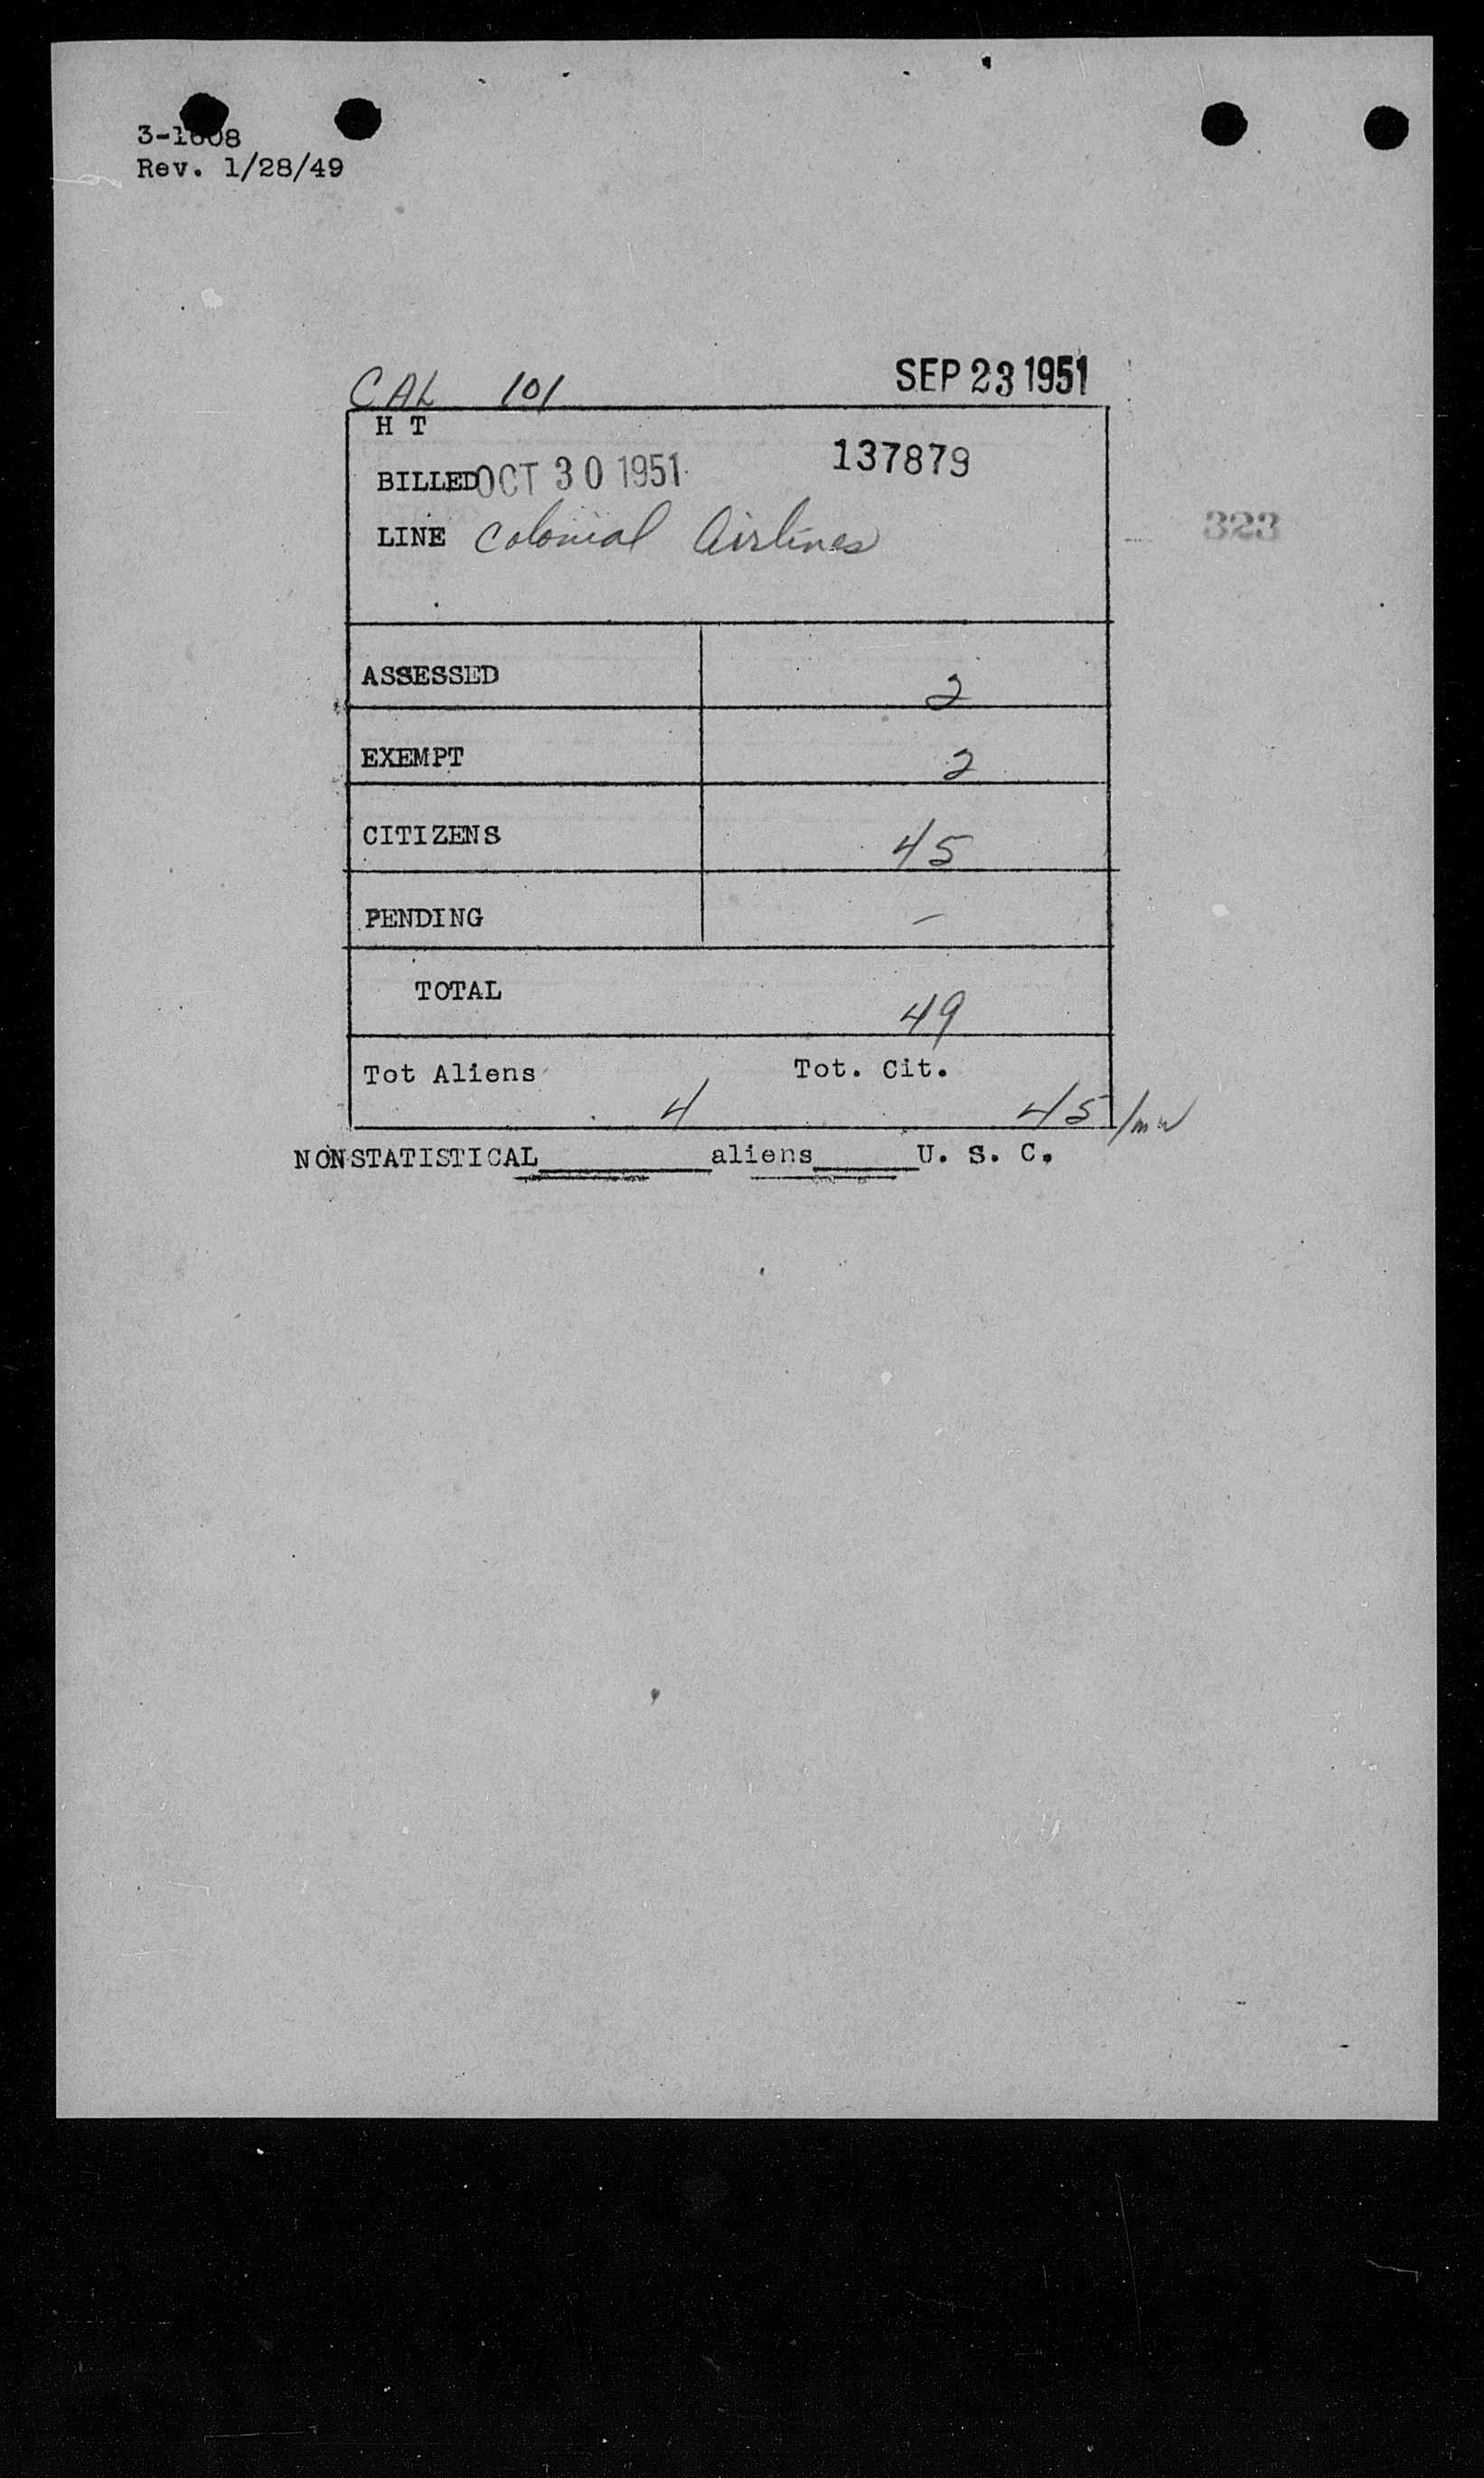 Rev. 1/28/49
CAL 101 SEP 23 1951
H T
BILLED OCT 30 1951 137879
LINE Colonial Airlines
323
ASSESSED 2
EXEMPT 2
CITIZENS 45
PENDING –
TOTAL 49
Tot Aliens 4 Tot. Cit. 45/mw
NONSTATISTICAL______aliens______U. S. C.